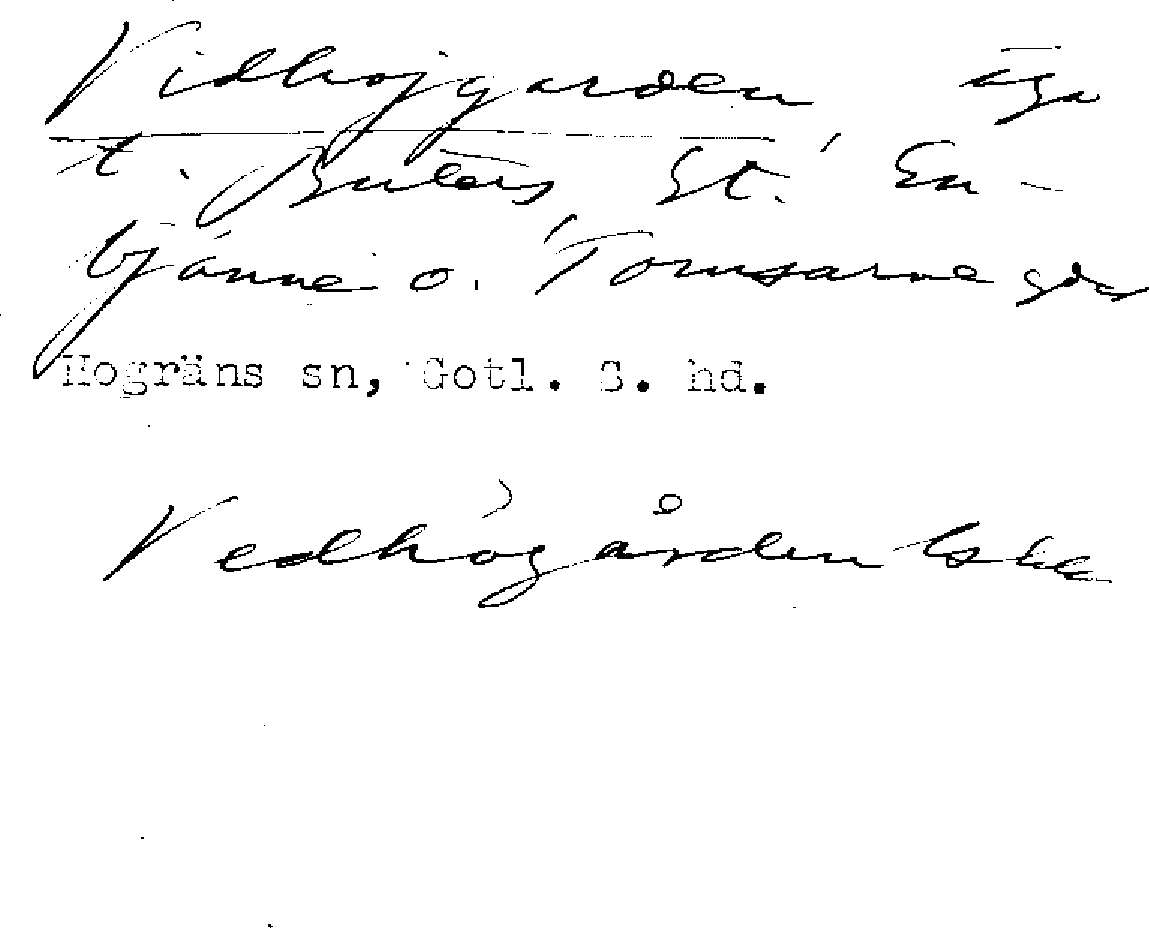 Vidhojgarden äga
t. Buters St. En-
bjänne o. Tomsarve gdar
Hogräns sn, Gotl. S. hd.
Vedhögården lskkr